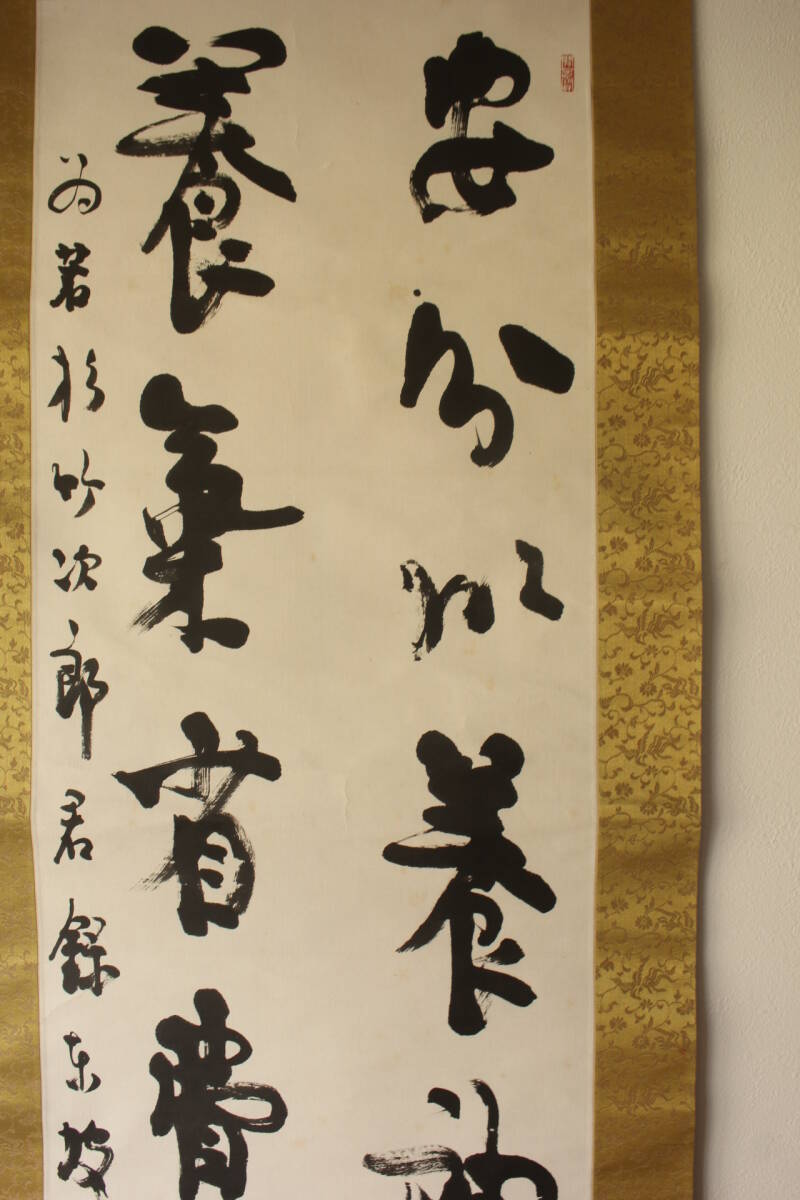 安分以養神
養氣省費
為若杉竹次郎君錄東坡